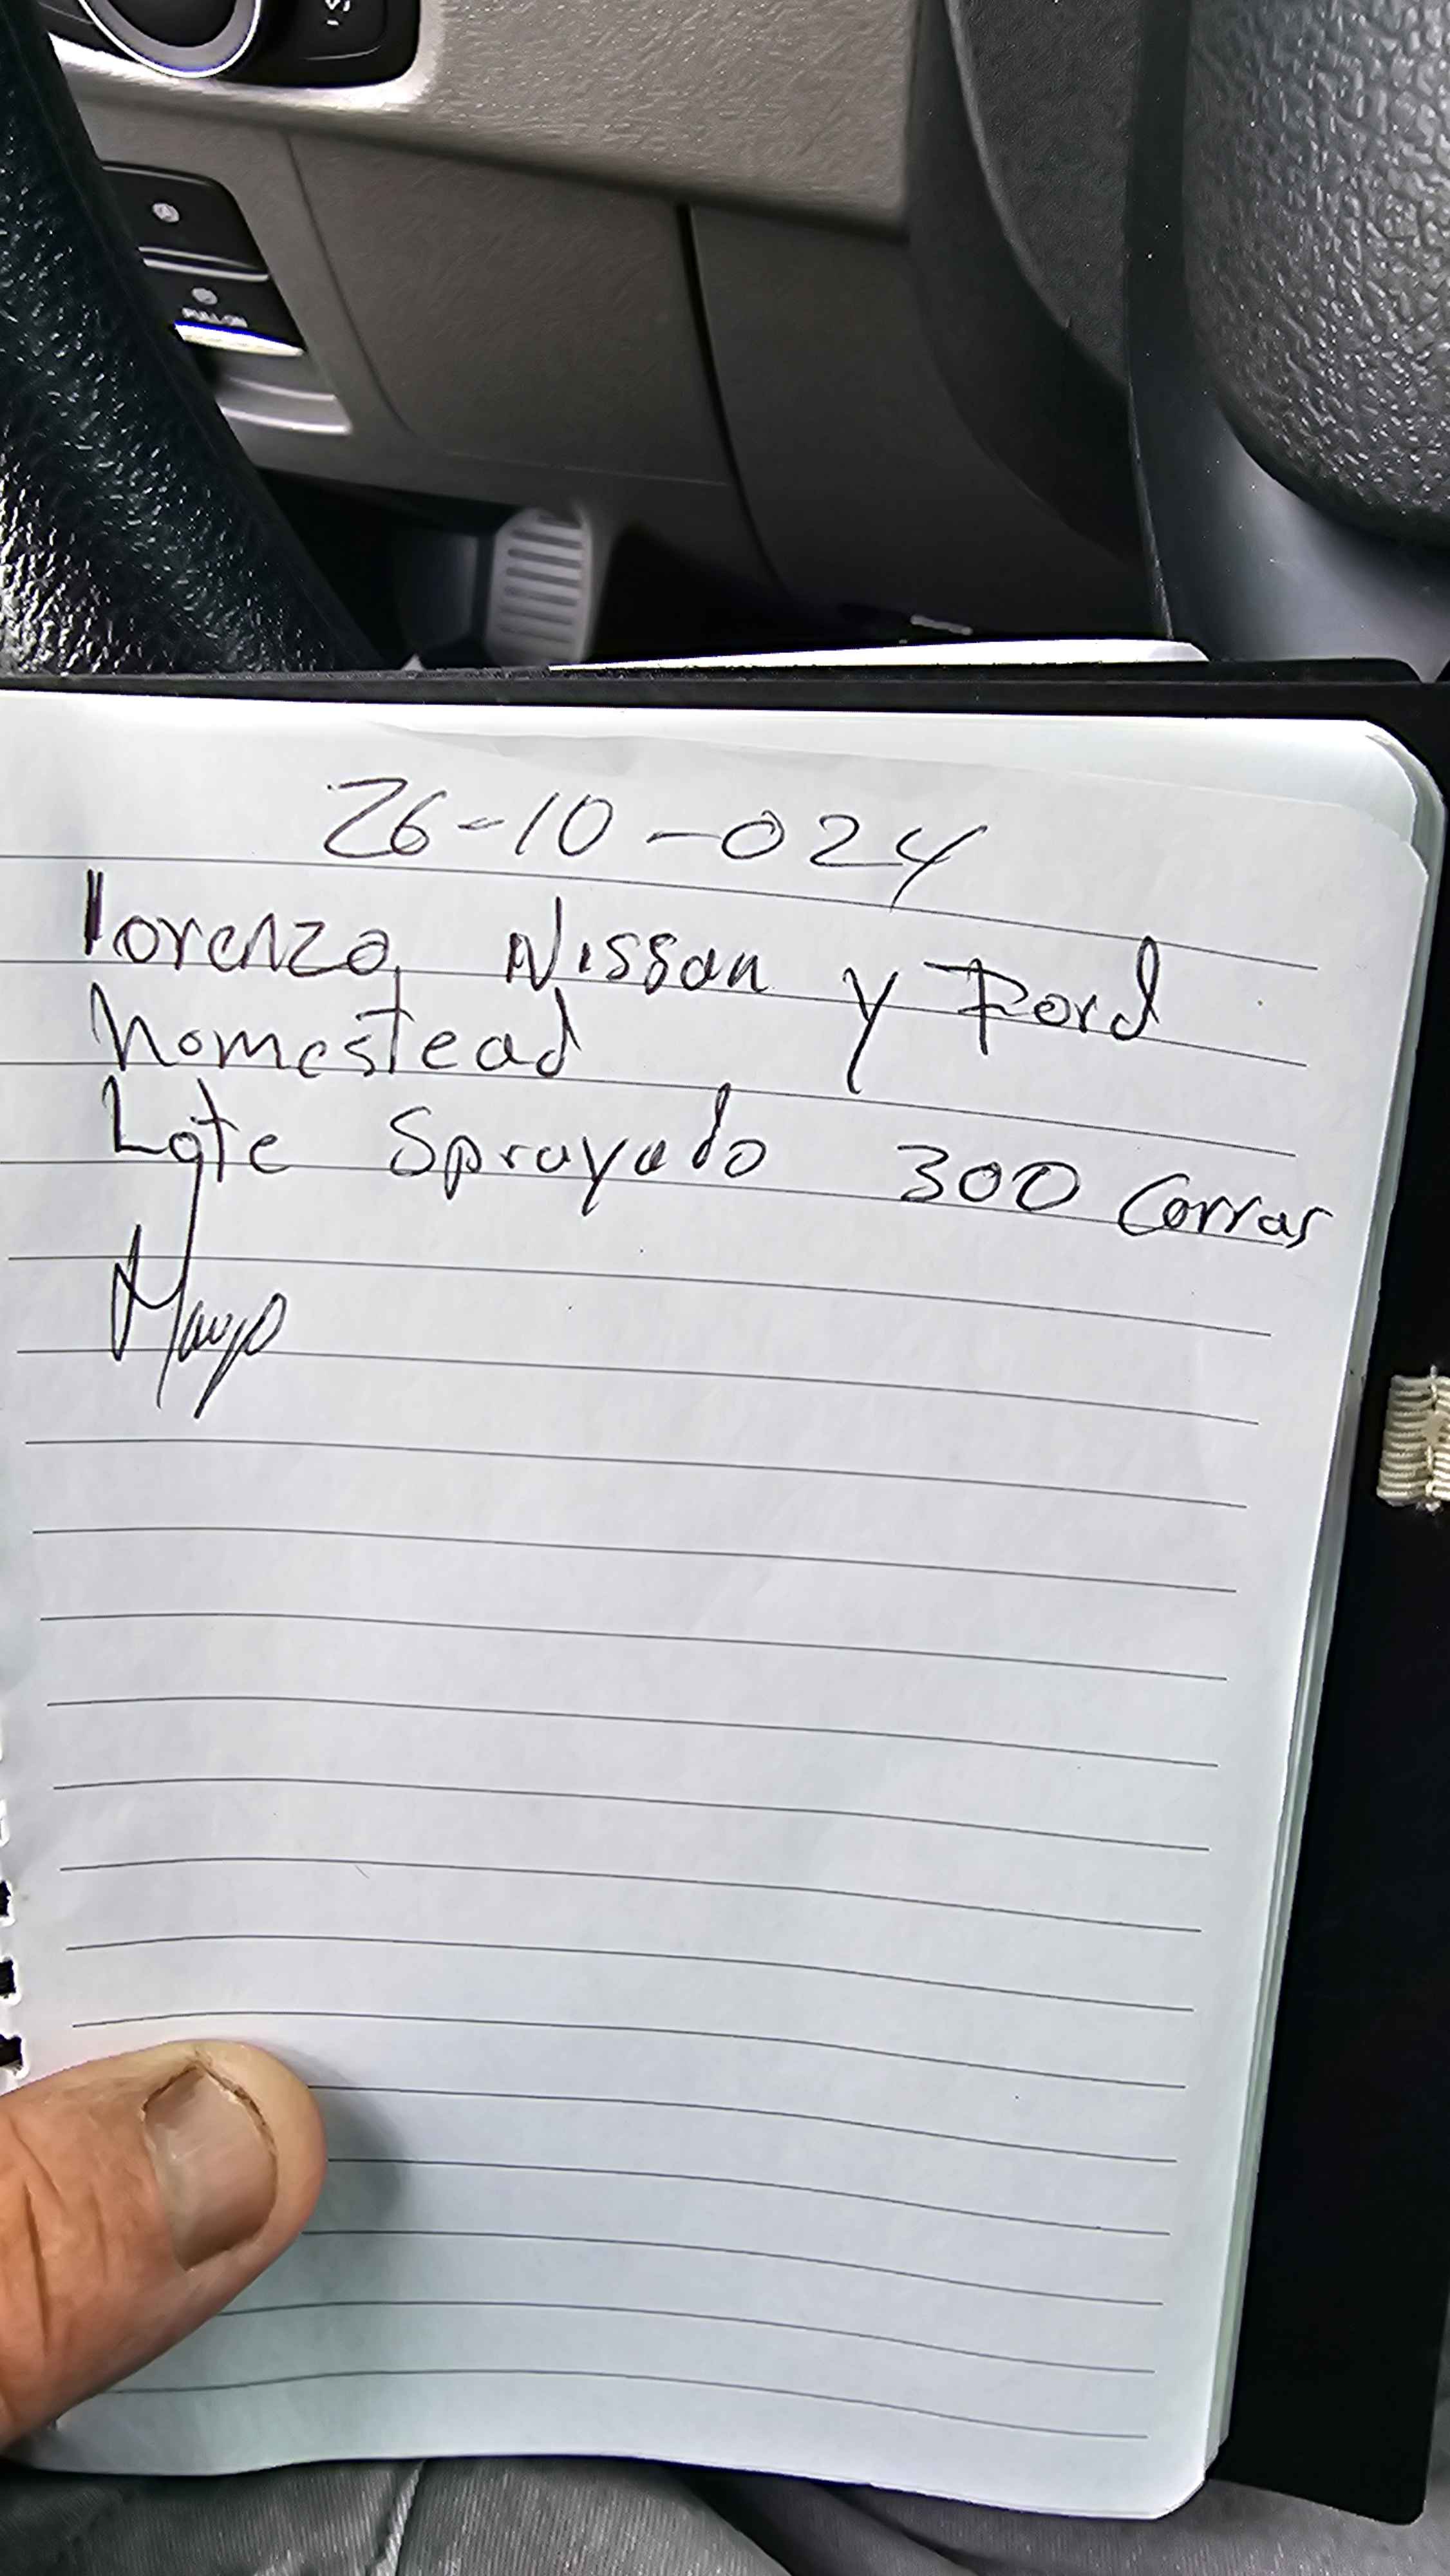 PULL ON
26-10-024
lorenzo, Nissan y Ford
homestead
Lote Sprayado 300 Corras